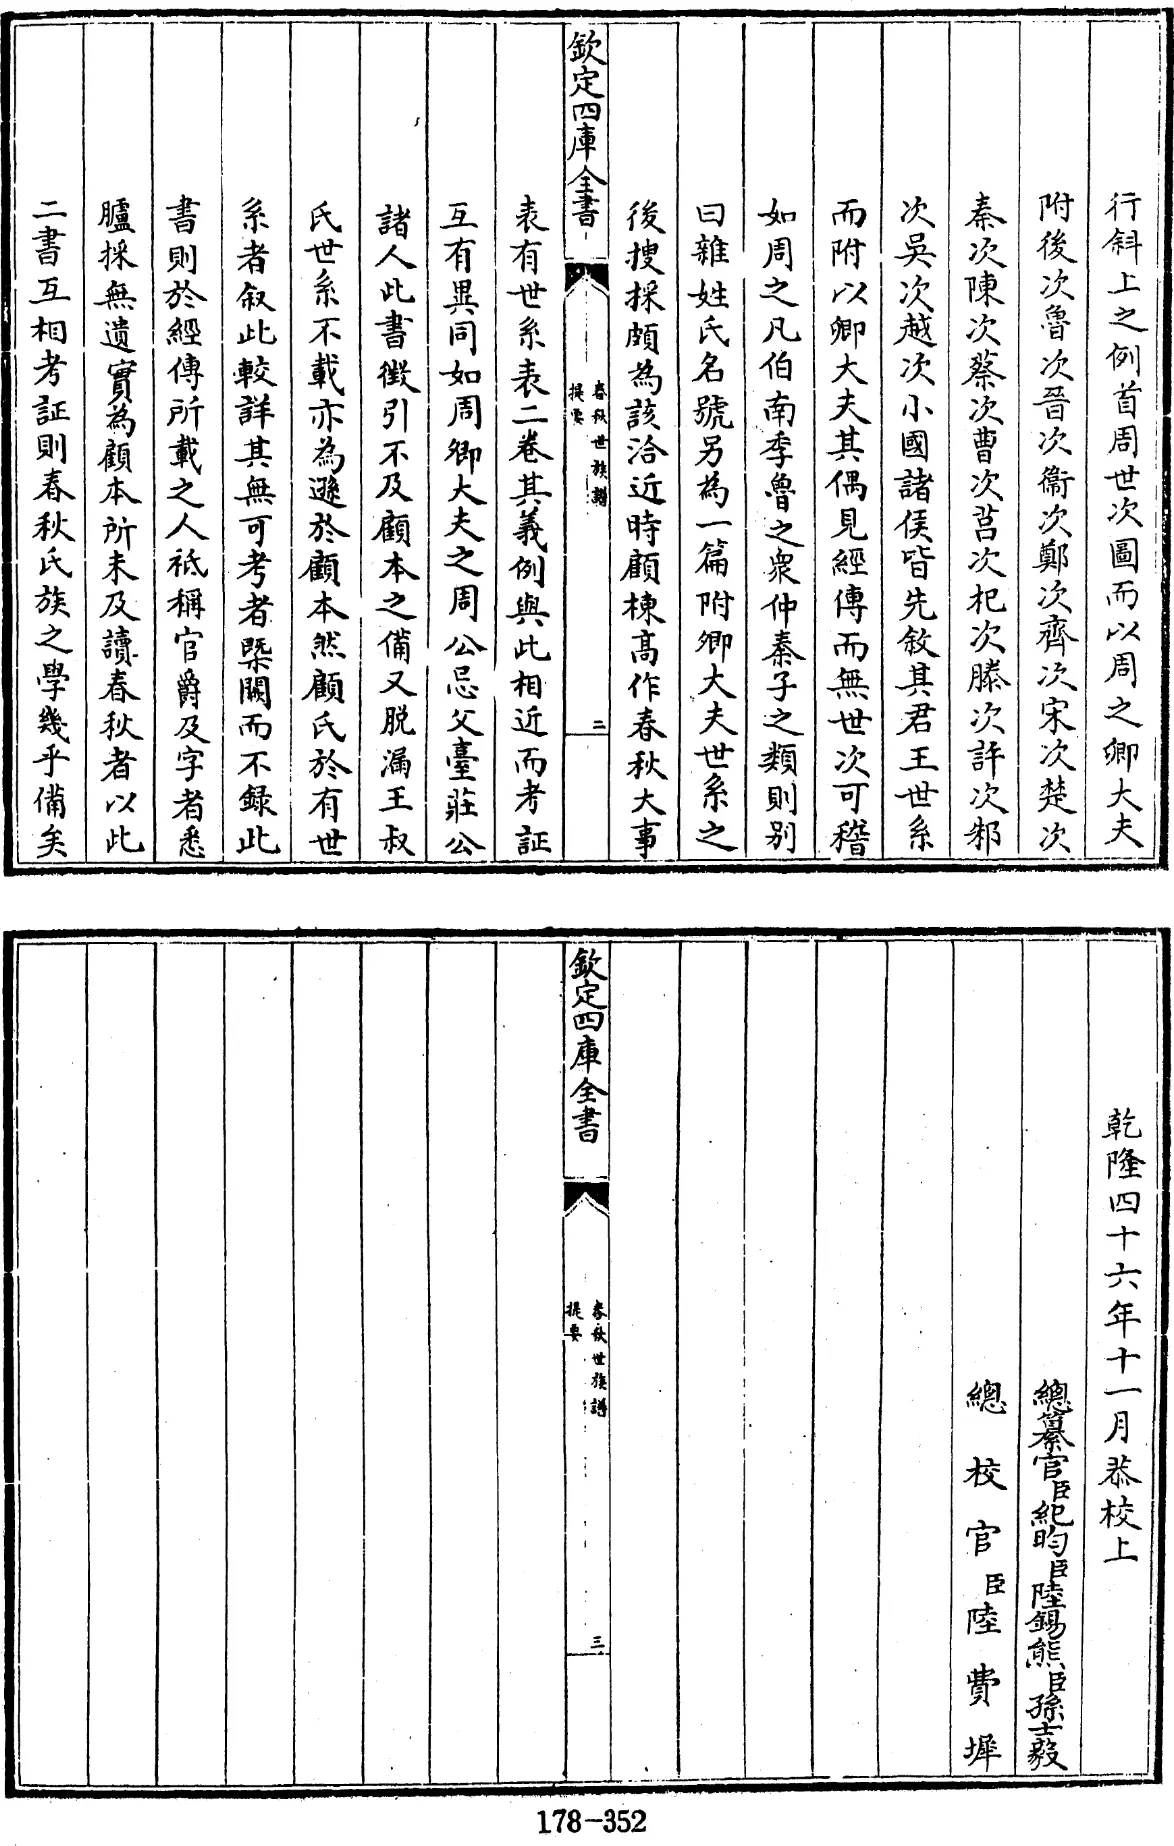 行斜上之例首周世次圖而以周之卿大夫
附後次魯次晉次衞次鄭次齊次宋次楚次
秦次陳次蔡次曹次莒次杞次滕次許次邾
次吳次越次小國諸侯皆先敘其君王世系
而附以卿大夫其偶見經傳而無世次可稽
如周之凡伯南季魯之衆仲秦子之類則别
曰雜姓氏名號另為一篇附卿大夫世系之
後搜採頗為該洽近時顧棟高作春秋大事
欽定四庫全書
春秋世族譜
提要
二
表有世系表二卷其義例與此相近而考証
互有異同如周卿大夫之周公忌父臺莊公
諸人此書徴引不及顧本之備又脱漏王叔
氏世系不載亦為遜於顧本然顧氏於有世
系者叙此較詳其無可考者槩闕而不録此
書則於經傳所載之人祗稱官爵及字者悉
臚採無遺實為顧本所未及讀春秋者以此
二書互相考証則春秋氏族之學幾乎備矣
乾隆四十六年十一月恭校上
總纂官臣紀昀臣陸錫熊臣孫士毅
總校官臣陸費墀
欽定四庫全書
春秋世族譜
提要
三
178-352